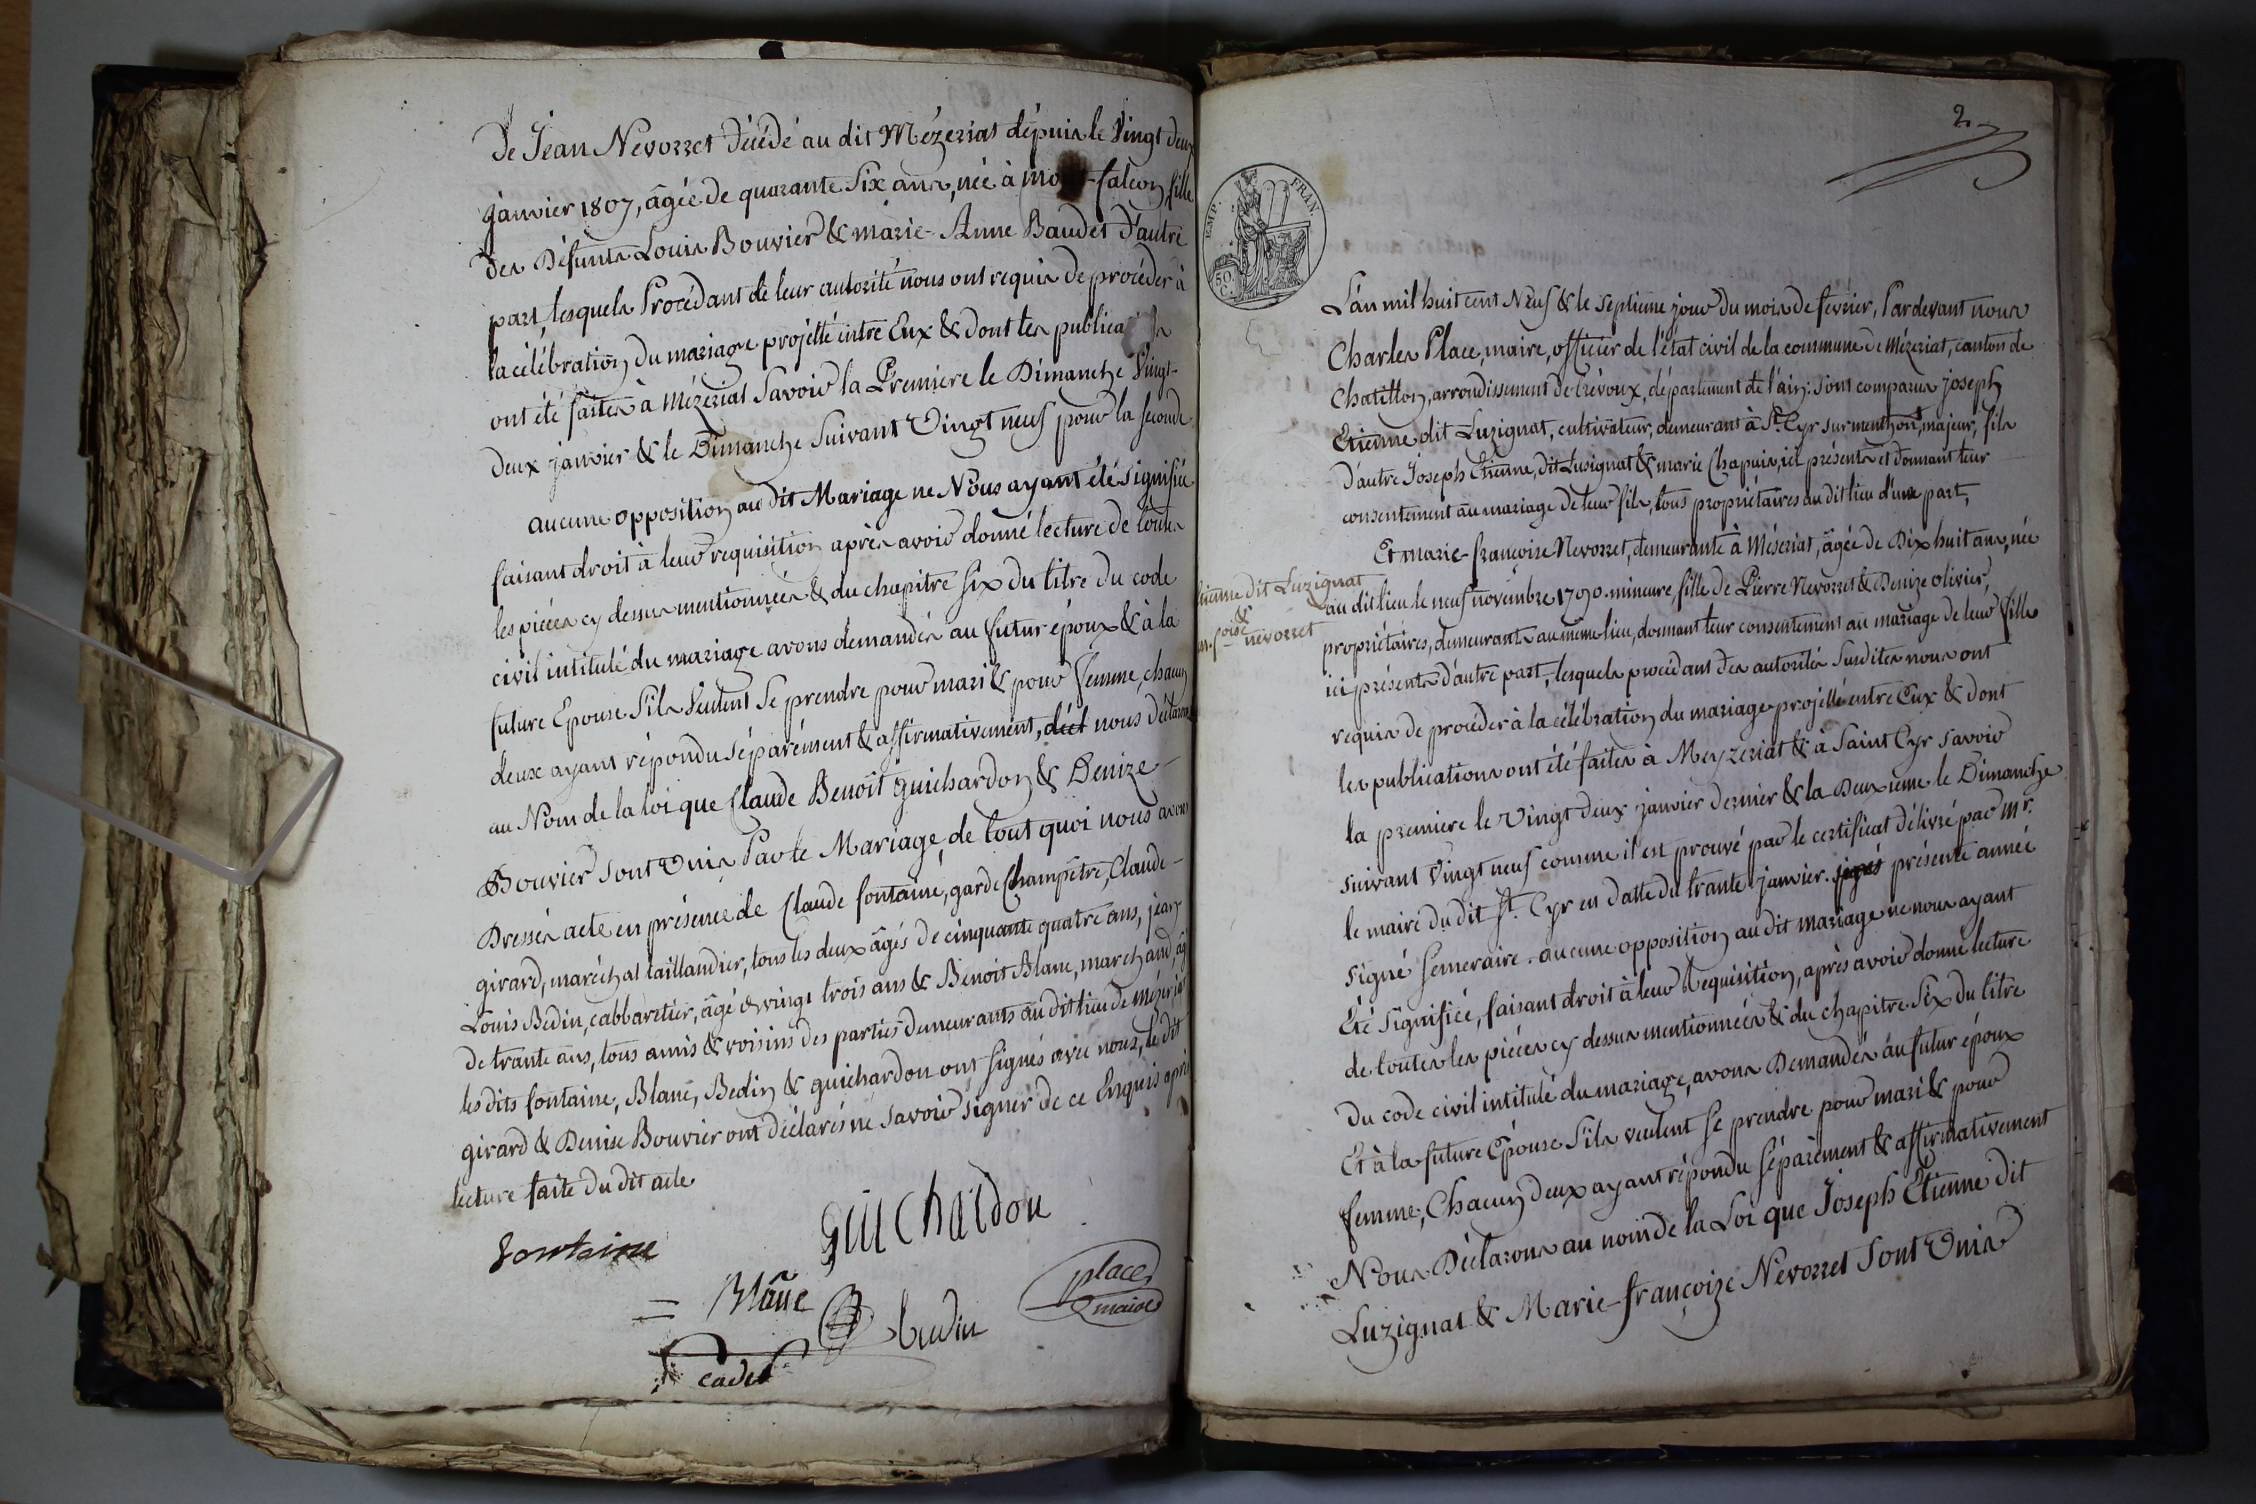 De Jean Nevorret Décédé au dit Mézeriat dépuis le Vingt deux
janvier 1807, âgée de quarante Six ans, née à falcon fille
des Défunts Louis Bouvier & marie-Anne Baudet d'autre
part, lesquels Procédant de leur autorité nous ont requis de procéder à
la célébration du mariage projetté entre Eux & dont les
ont été faites à Mézeriat Savoir la Premiere le Dimanche Vingt-
deux janvier & le Dimanche Suivant Vingt neuf pour la seconde
aucune opposition au dit Mariage ne Nous ayant été signifiée
faisant droit à leur requisition après avoir donné lecture de toutes
les pièces cy dessus mentionnées & du chapitre Six du titre du code
civil intitulé du mariage avons demandés au futur époux & à la
future Epouse S'ils Veulent Se prendre pour mari & pour femme, chacun
deux ayant répondu séparément & affirmativement, décl nous déclarons
au Nom de la loi que Claude Benoit Guichardon & Denize-
Bouvier sont Unis Par le Mariage de tout quoi nous avons
Dressés acte en présence de Claude fontaine, garde Champêtre, Claude-
girard, maréchal taillandier, tous les deux âgés de cinquante quatre ans, jean
Louis Bedin, cabbaretier, âgé de vingt trois ans & Benoit Blanc, marchand, âgé
de trante ans, tous amis & voisins des parties demeurants au dit lieu de
les dits fontaine, Blanc, Bedin & guichardon ont signés avec nous, le dit
girard & Denise Bouvier ont déclarés ne savoir signer de ce Enquis après
lecture faite du dit acte
fontaine
Guichardon
Blanc
place
maire
budin
cadet
2
EMP. FRAN.
50 C.
L'an mil huit cent Neuf & le septieme jour du mois de février, Pardevant nous
Charles Place, maire, officier de l'état civil de la commune de Mézeriat, canton de
Chatillon, arrondissement de trévoux, département de l'ain; sont comparus joseph
Etienne dit Luzignat, cultivateur, demeurant à St. Cyr sur menthon, majeur, fils
d'autre Joseph Etienne, dit Lusignat & marie Chapuis, ici présents et donnant leur
consentement au mariage de leur fils, tous propriétaires au dit lieu d'une part,
Et marie-françoise Nevorret, demeurante à Méseriat, âgée de Dix huit ans, née
tienne dit Luzignat
&
m. foise nevorret
au dit lieu le neuf novembre 1790. mineure, fille de Pierre Nevorret & Denize olivier,
propriétaires, demeurants au même lieu, donnant leur consentement au mariage de leur fille
ici présents d'autre part, lesquels procédant des autorités susdites nous ont
requis de procéder à la célébration du mariage projetté entre Eux & dont
les publications ont été faites à Meyzeriat & à Saint Cyr savoir
la premiere le Vingt deux janvier dernier & la Deuxieme le Dimanche
suivant Vingt neuf comme il est prouvé par le certificat délivré par Mr.
le maire du dit St. Cyr en datte du trante janvier présente année
signé Semeraire. aucune opposition au dit mariage ne nous ayant
Eté signifiée, faisant droit à leur Requisition, après avoir donné lecture
de toutes les pièces cy dessus mentionnées & du chapitre Six du titre
Du code civil intitulé du mariage, avons Demandés au futur époux
Et à la future Epouse S'ils veulent Se prendre pour mari & pour
femme, Chacun deux ayant répondu Séparément & affirmativement
Nous Déclarons au nom de la Loi que Joseph Etienne dit
Luzignat & Marie-françoize Nevorret Sont Unis